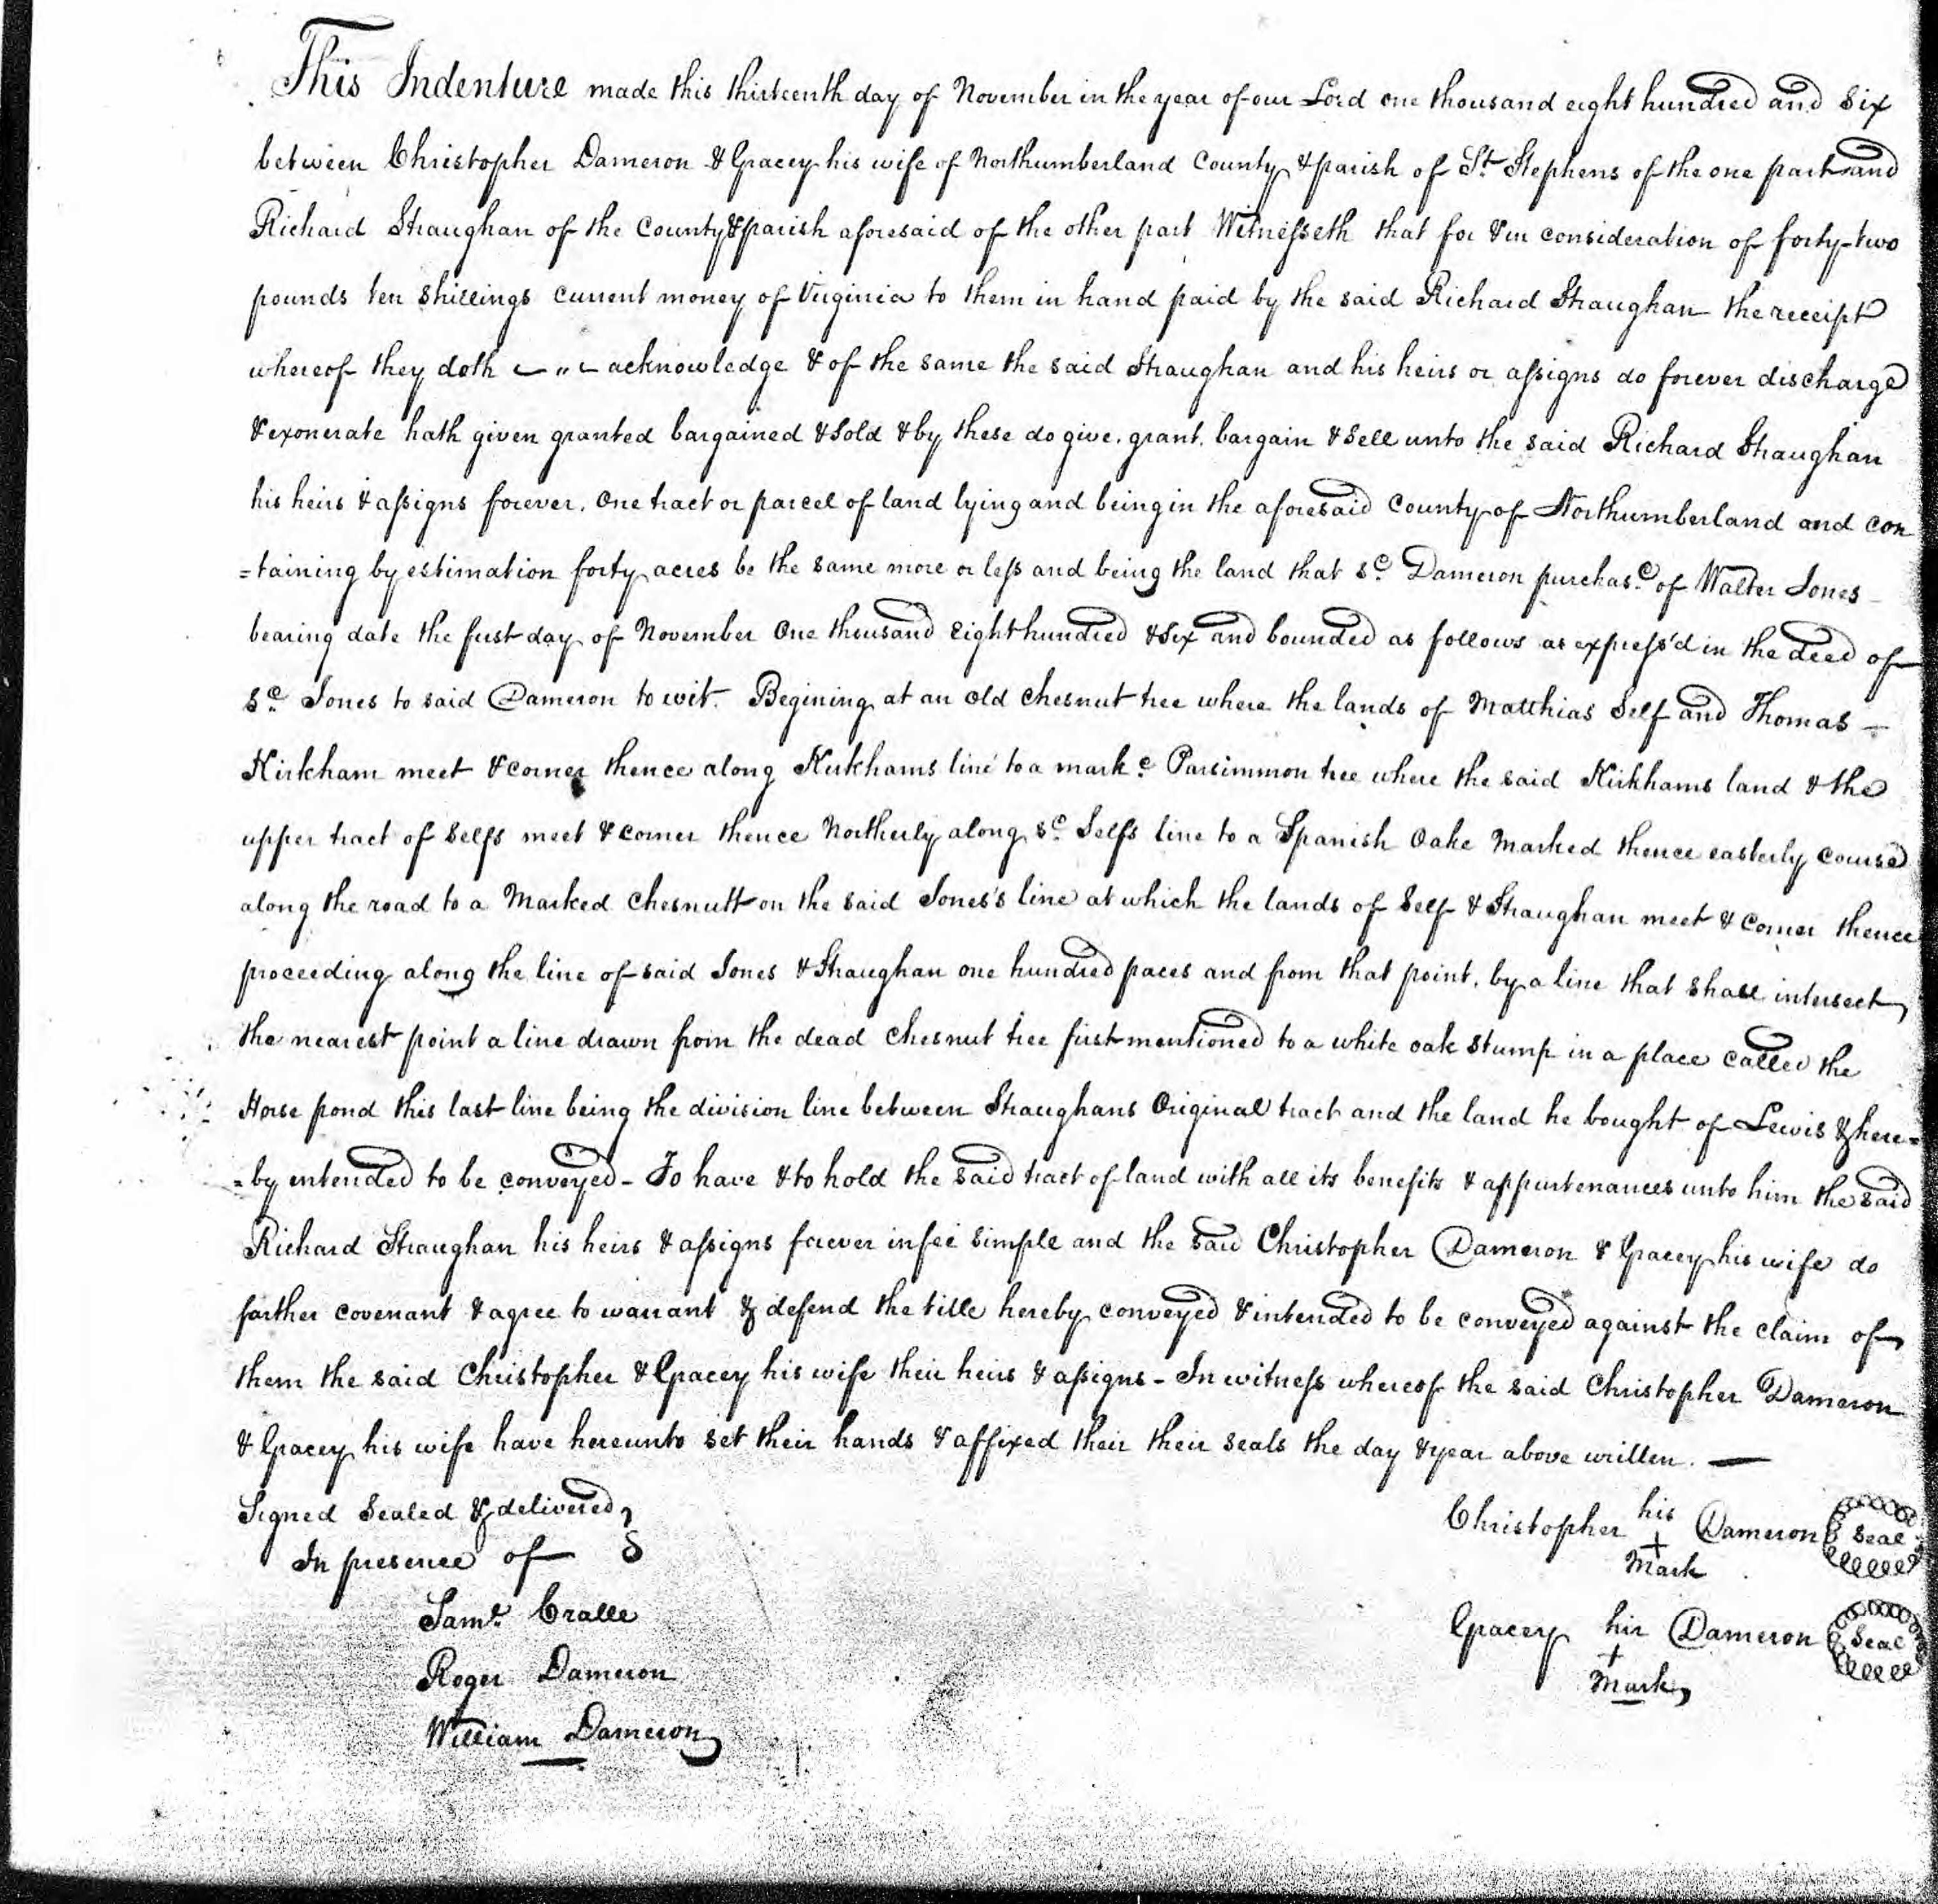 This Indenture made this thirteenth day of November in the year of our Lord one thousand eight hundred and six
between Christopher Dameron & Gracey his wife of Northumberland County & parish of St. Stephens of the one part and
Richard Straughan of the County & parish aforesaid of the other part Witnesseth that for & in consideration of forty-two
pounds ten shillings current money of Virginia to them in hand paid by the said Richard Straughan the receipt
whereof they doth — " — acknowledge & of the same the said Straughan and his heirs or assigns do forever discharge
& exonerate hath given granted bargained & sold & by these do give, grant, bargain & sell unto the said Richard Straughan
his heirs & assigns forever, One tract or parcel of land lying and being in the aforesaid County of Northumberland and con
=taining by estimation forty acres be the same more or less and being the land that sd. Dameron purchasd. of Walter Jones
bearing date the first day of November One thousand Eight hundred & six and bounded as follows as express'd in the deed of
sd. Jones to said Dameron to wit. Begining at an old chesnut tree where the lands of Matthias Self and Thomas —
Kirkham meet & corner thence along Kirkhams line to a markd. Parsimmon tree where the said Kirkhams land & the
upper tract of Selfs meet & corner thence Northerly along sd. Selfs line to a Spanish Oake Marked thence easterly course
along the road to a Marked Chesnutt on the said Jones's line at which the lands of Self & Straughan meet & corner thence
proceeding along the line of said Jones & Straughan one hundred paces and from that point, by a line that shall intersect
the nearest point a line drawn from the dead chesnut tree first mentioned to a white oak stump in a place called the
Horse pond this last line being the division line between Straughans Original tract and the land he bought of Lewis & here=
=by intended to be conveyed - To have & to hold the said tract of land with all its benefits & appurtenances unto him the said
Richard Straughan his heirs & assigns forever in fee simple and the said Christopher Dameron & Gracey his wife do
farther covenant & agree to warrant & defend the title hereby conveyed & intended to be conveyed against the claim of
them the said Christopher & Gracey his wife their heirs & assigns - In witness whereof the said Christopher Dameron
& Gracey his wife have hereunto set their hands & affixed their their seals the day & year above written. —
Signed Sealed & delivered
In presence of
Christopher his Dameron Seal
+
Mark
Saml. Cralle
Gracey hir Dameron Seal
+
Mark
Roger Dameron
William Dameron